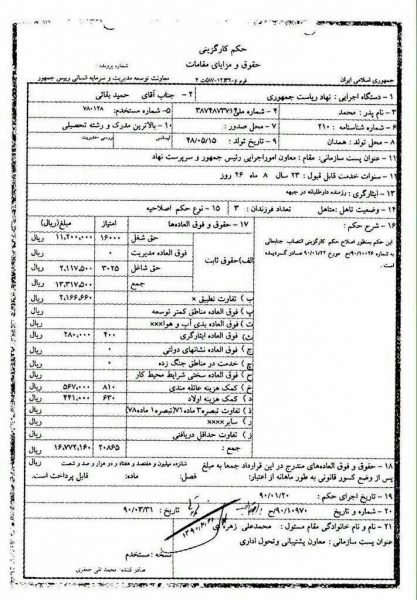 حکم کارگزینی
حقوق و مزایای مقامات
شماره پرونده
جمهوری اسلامی ایران
معاونت توسعه مدیریت و سرمایه انسانی رییس جمهور
۱ – دستگاه اجرایی : نهاد ریاست جمهوری
۲ – جناب آقای حمید بقائی
۳ – نام پدر : محمد
۴ – شماره ملی:
۵ – شماره مستخدم: ۷۸۰۱۲۸
۶ – شماره شناسنامه : ۲۱۰
۷ – محل صدور :
۱۰ – بالاترین مدرک و رشته تحصیلی
لیسانس
۸ – محل تولد : همدان
۹ – تاریخ تولد : ۴۸/۰۵/۱۵
۱۱ – عنوان پست سازمانی: مقام : معاون اموراجرایی رئیس جمهور و سرپرست نهاد
۱۲ – سنوات خدمت قابل قبول : ۲۳ سال ۸ ماه ۲۶ روز
۱۳ – ایثارگری : رزمنده داوطلبانه در جبهه
۱۴ – وضعیت تاهل :متاهل تعداد فرزندان : ۳
۱۵ – نوع حکم اصلاحیه
۱۶ – شرح حکم :
این حکم بمنظور اصلاح حکم کارگزینی انتصاب جنابعالی
به شماره ۹۰/۱۰۰۲۶/ح مورخ ۹۰/۰۱/۲۲ صادر گردیده
است
۱۷ – حقوق و فوق العاده‌ها امتیاز مبلغ(ریال)
الف)حقوق ثابت
حق شغل ۱۶۰۰۰ ۱۱,۲۰۰,۰۰۰ ریال
فوق العاده مدیریت ۰ ۰ ریال
حق شاغل ۳۰۲۵ ۲,۱۱۷,۵۰۰ ریال
جمع ۱۳,۳۱۷,۵۰۰ ریال
ب) تفاوت تطبیق × ۲,۱۶۶,۶۶۰ ریال
پ) فوق العاده مناطق کمتر توسعه ۰ ریال
ت) فوق العاده بدی آب و هوا××× ریال
ث) فوق العاده ایثارگری ۴۰۰ ۲۸۰,۰۰۰ ریال
ج) فوق العاده نشانهای دولتی ۰ ریال
چ) خدمت در مناطق جنگ زده ۰ ریال
ح) فوق العاده سختی شرایط محیط کار ریال
خ) کمک هزینه عائله مندی ۸۱۰ ۵۶۷,۰۰۰ ریال
د) کمک هزینه اولاد ۶۳۰ ۴۴۱,۰۰۰ ریال
ذ) تفاوت تبصره۳ ماده۷۱(تبصره۱ ماده۷۸) ریال
ر) سایر×××× ریال
ز) تفاوت حداقل دریافتی ریال
جمع : ۲۰۸۶۵ ۱۶,۷۷۲,۱۶۰ ریال
۱۸ – حقوق و فوق العاده‌های مندرج در این قرارداد جمعا به مبلغ شانزده میلیون و هفتصد و هفتاد و دو هزار و صد و شصت ریال
پس از وضع کسور قانونی به طور ماهانه از اعتبار: فصل: ماده: قابل پرداخت است.
۱۹ – تاریخ اجرای حکم : ۹۰/۰۱/۲۰
۲۰ – شماره و تاریخ ۹۰/۱۰۹۷۰/ح تاریخ : ۹۰/۰۳/۳۱
۲۱ – نام و نام خانوادگی مقام مسئول : محمدعلی
عنوان پست سازمانی : معاون پشتیبانی وتحول اداری
نسخه : مستخدم
صادر کننده: محمد تقی جعفری